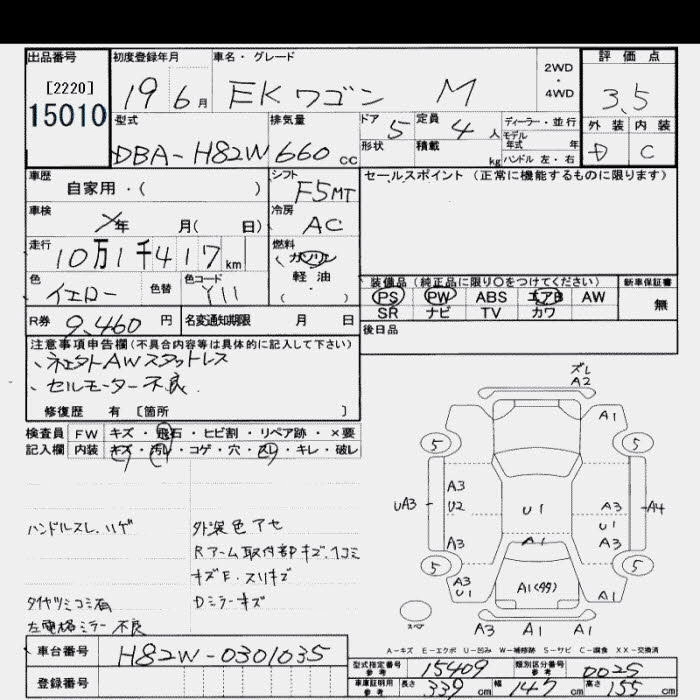 出品番号 初度登録年月 車名・グレード 評価点
[2220]
15010
19年6月 EKワゴン M 2WD・4WD 3.5
型式 排気量 ドア 定員 ディーラー・並行 外装 内装
DBA-H82W 660cc 5 4人 モデル年式 年 D C
形状 積載 kg ハンドル 左・右
車歴 シフト セールスポイント (正常に機能するものに限ります)
自家用・( ) F5MT
車検 冷房
年 月( 日) AC
走行 燃料
10万1千417km ガソリン
軽油
・( )
色 色替 色コード 装備品 (純正品に限り○をつけてください) 新車保証書
イエロー Y11 PS PW ABS エアB AW 無
SR ナビ TV カワ
R券 9,460円 名変通知期限 月 日 後日品
注意事項申告欄(不具合内容等は具体的に記入して下さい)
、セルモーター不良.
修復歴 有 [箇所 ]
検査員 FW キズ・飛石・ヒビ割・リペア跡・×要
記入欄 内装 キズ・汚レ・コゲ・穴・スレ・キレ・破レ
ズレ
A2
A1
5 5
A3
UA3 U2 U1 A3 A4
U1
A3 A1 A3
5 5
A3
U1 A1 A1
スペア
A3 A1 A1
ハンドルスレ.ハゲ 外装色アセ
Rアーム取付部キズ.ヘコミ
キズE.スリキズ
Dミラーキズ
左電格ミラー不良
A-キズ E-エクボ U-凹み W-補修跡 S-サビ C-腐食 XX-交換済
車台番号 H82W-0301035
登録番号
型式指定番号 参考 15409 類別区分番号 参考 0025
車庫証明用 参考 長さ 339cm 幅 147cm 高さ 155cm